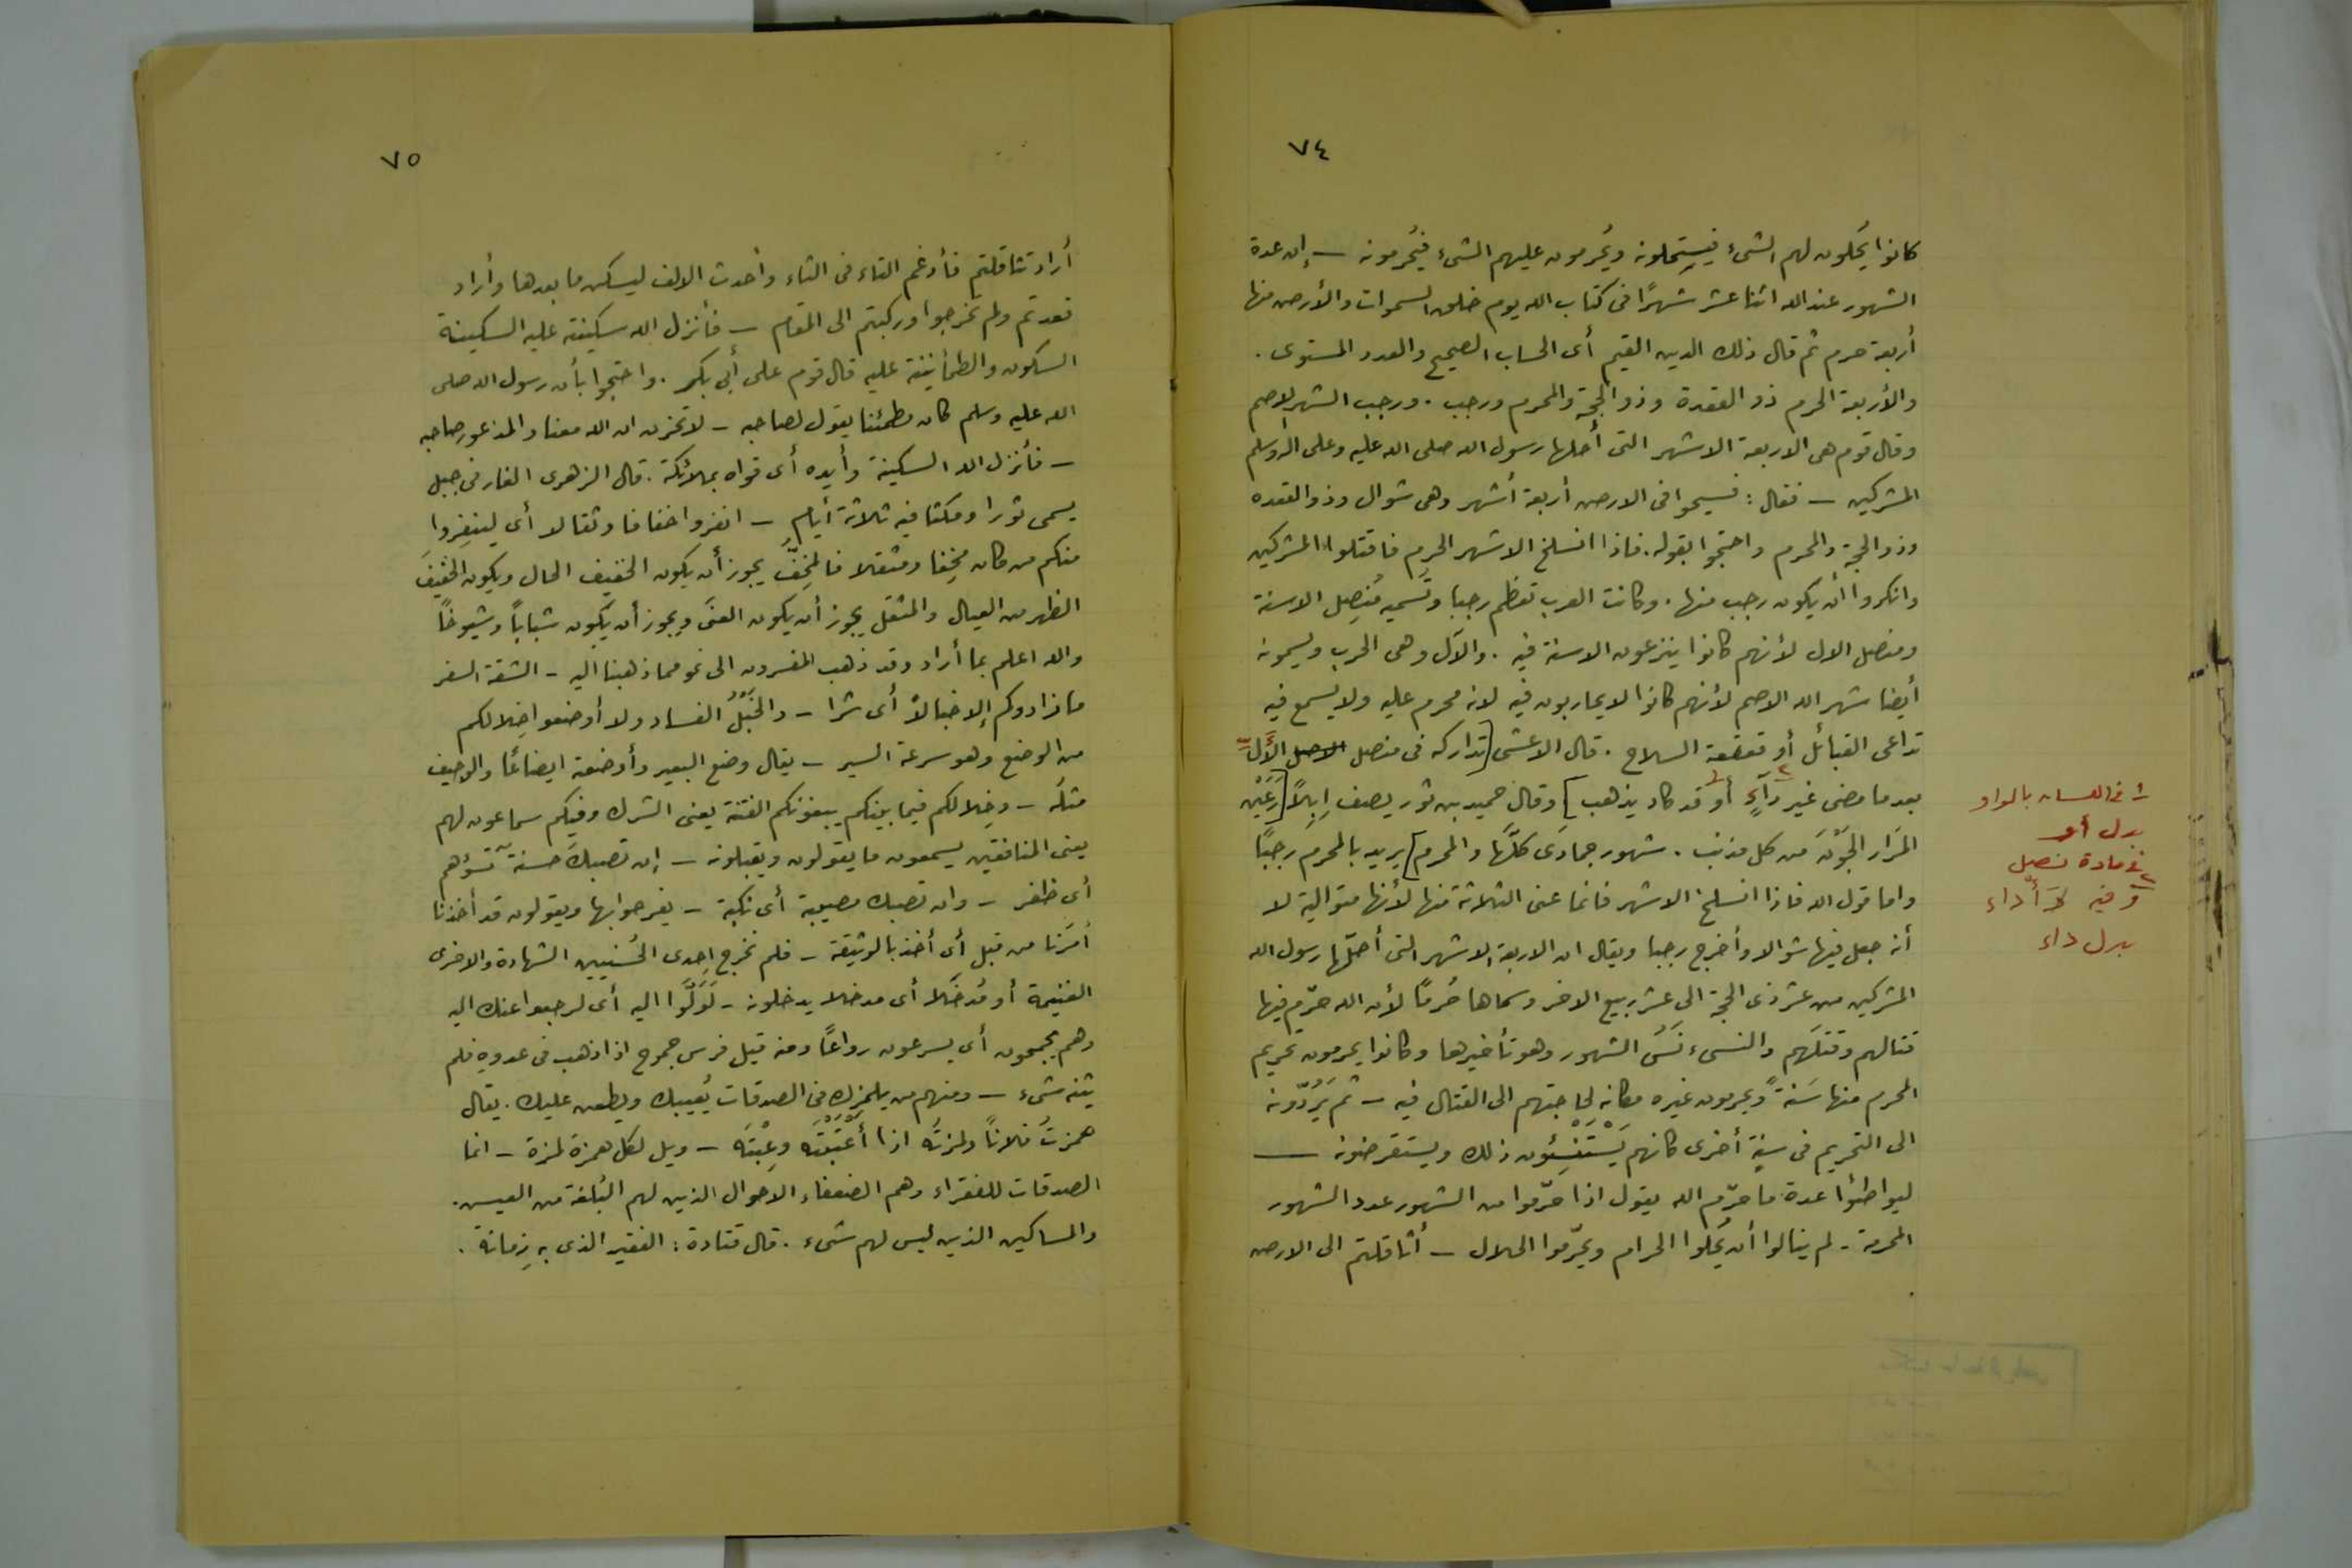 ٧٤
كانوا يُحلون لهم الشىء فيستحلونه ويُحرمون عليهم الشىء فيُحرمونه — إن عدة
الشهور عند الله اثنا عشر شهرًا فى كتاب الله يوم خلق السموات والأرض منها
أربعة حرم ثم قال ذلك الدين القيم أى الحساب الصحيح والعدد المستوى .
والأربعة الحرم ذو القعدة وذو الحجة والمحرم ورجب . ورجب الشهر الاصم
وقال قوم هى الاربعة الاشهر التى أحلها رسول الله صلى الله عليه وعلى آله وسلم
المشركين — فقال : فسيحوا فى الارض أربعة أشهر وهى شوال وذو القعده
وذو الحجة والمحرم واحتجوا بقوله . فاذا انسلخ الاشهر الحرم فاقتلوا المشركين
وانكروا أن يكون رجب منها . وكانت العرب تعظم رجبا وتسميه مُنصِل الاسنة
ومنصل الال لأنهم كانوا ينزعون الاسنة فيه . والآل وهى الحرب ويسمونه
أيضا شهر الله الاصم لأنهم كانوا لايحاربون فيه لانه محرم عليه ولا يسمع فيه
تداعى القبائل أو قعقعة السلاح . قال الاعشى [تداركه فى منصل الأَلِّ
بعدما مضى غير دآءٍ ٢ أو ١ قد كاد يذهب] وقال حميد بن ثور يصف إبلاً [رَعَيْن
المَرَار الجَوْنَ من كل مذنب . شهور جمادَى كلَّها والمحرم] يريد بالمحرم رجبًا
واما قول الله فاذا انسلخ الاشهر فانما عنى الثلاثة منها لأنها متوالية لا
أنه جعل فيها شوالا وأخرج رجبا ويقال ان الاربعة الاشهر التى أحلّها رسول الله
المشركين من عشر ذى الحجة الى عشر ربيع الاخر وسماها حُرمًا لأن الله حرّم فيها
قتالهم وقتلَهم والنسىء نَسْىُ الشهور وهو تأخيرها وكانوا يحرمون تحريم
المحرم منها سَنةً ويحرمون غيره مكانه لحاجتهم الى القتال فيه — ثم يَرُدّونه
الى التحريم فى سنةٍ أخرى كانهم يَسْتَنْسِئون ذلك ويستقرضونه —
ليواطئوا عدة ما حرّم الله يقول اذا حرّموا من الشهور عدد الشهور
المحرمة . لم ينالوا أن يُحلوا الحرام ويحرّموا الحلال — أثاقلتم الى الارض
١ فى اللسان بالواو
بدل أو
٢ فى مادة نصل
وفيه أدّاء
بدل داء
٧٥
أراد تثاقلتم فأدغم التاء فى الثاء وأحدث الالف ليسكن ما بعدها وأراد
قعدتم ولم تخرجوا وركبتم الى المقام — فأنزل الله سكينته عليه السكينة
السكون والطمأنينة عليه قال قوم على أبى بكر . واحتجوا بأن رسول الله صلى
الله عليه وسلم كان مطمئنا يقول لصاحبه — لا تحزن ان الله معنا والمذعور صاحبه
— فأنزل الله السكينة وأيده أى قواه بملائكة . قال الزهرى الغار فى جبل
يسمى ثورا ومكثا فيه ثلاثة أيام — انفروا خفافا وثقالا أى لينفِروا
منكم من كان مُخِفا ومثقلا فالمخِفُّ يجوز أن يكون الخفيف الحال ويكون الخفيفَ
الظهر من العيال والمثقل يجوز أن يكون الغنىَّ ويجوز أن يكون شبابًا وشيوخًا
والله اعلم بما أراد وقد ذهب المفسرون الى نحو مما ذهبنا اليه — الشقة السفر
ما زادوكم إلا خبالاً أى شرا — والخَبْلُ الفساد ولا أوضعوا خِلالكم
من الوضع وهو سرعة السير — يقال وضع البعير وأوضعته ايضاعًا والوجيف
مثلَه — وخِلالكم فيما بينكم يبغونكم الفتنة يعنى الشرك وفيكم سماعون لهم
يعنى المنافقين يسمعون ما يقولون ويقبلونه — إن تصبك حسنة تسؤهم
أى ظفر — وان تصبك مصيبة أى نكبة — يفرحوا بها ويقولون قد أخذنا
أمرَنا من قبل أى أخذ بالوثيقة — فلم نخرج إحدى الحُسنيين الشهادة والاخرى
الغنيمة أو مُدخَلا أى مدخلا يدخلونه — لَوَلَّوا اليه أى لرجعوا عنك اليه
وهم يجمحون أى يسرعون رواغًا ومنه قيل فرس جموح اذا ذهب فى عدوهِ فلم
يثنه شىء — ومنهم من يلمزك فى الصدقات يُعيبك ويطعن عليك . يقال
همزتُ فلانًا ولمزتُه اذا أغْتَبْتَه وعِبْتَه — ويل لكل همزة لمزة — انما
الصدقات للفقراء وهم الضعفاء الاحوال الذين لهم البُلغة من العيش .
والمساكين الذين ليس لهم شىء . قال قتادة : الفقير الذى به زِمانة .